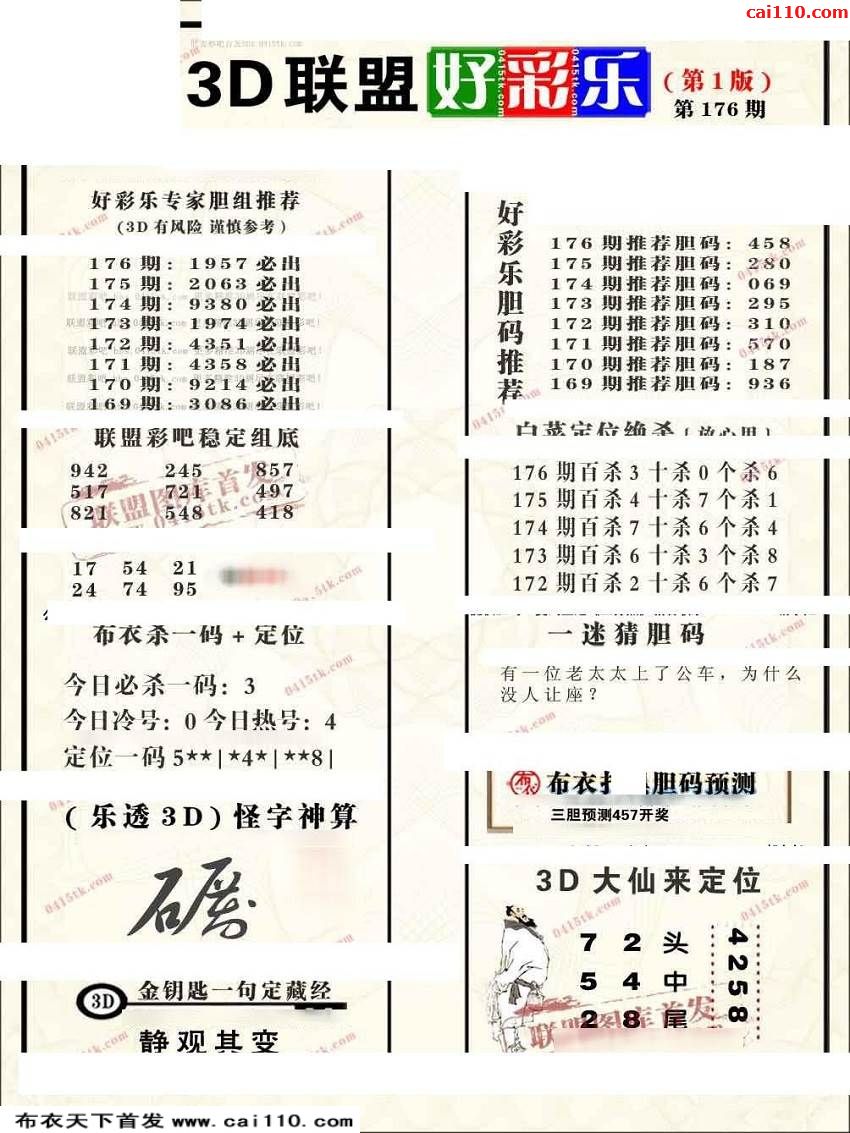 cai110.com
3D联盟好彩乐
(第1版)
第176期
好彩乐专家胆组推荐
(3D有风险 谨慎参考)
176期:1957必出
175期:2063必出
174期:9380必出
173期:1974必出
172期:4351必出
171期:4358必出
170期:9214必出
169期:3086必出
联盟彩吧稳定组底
942 245 857
517 721 497
821 548 418
联盟图库首发
0415tk.com
17 54 21
24 74 95
布衣杀一码+定位
今日必杀一码:3
今日冷号:0 今日热号:4
定位一码5**|*4*|**8|
(乐透3D)怪字神算
3D 金钥匙一句定藏经
静观其变
好彩乐胆码推荐
176期推荐胆码:458
175期推荐胆码:280
174期推荐胆码:069
173期推荐胆码:295
172期推荐胆码:310
171期推荐胆码:570
170期推荐胆码:187
169期推荐胆码:936
白菜定位绝杀(放心用)
176期百杀3十杀0个杀6
175期百杀4十杀7个杀1
174期百杀7十杀6个杀4
173期百杀6十杀3个杀8
172期百杀2十杀6个杀7
一迷猜胆码
有一位老太太上了公车,为什么
没人让座?
布衣
胆码预测
三胆预测457开奖
3D大仙来定位
7 2 头
5 4 中
2 8 尾
4258
联盟图库首发
布衣天下首发 www.cai110.com